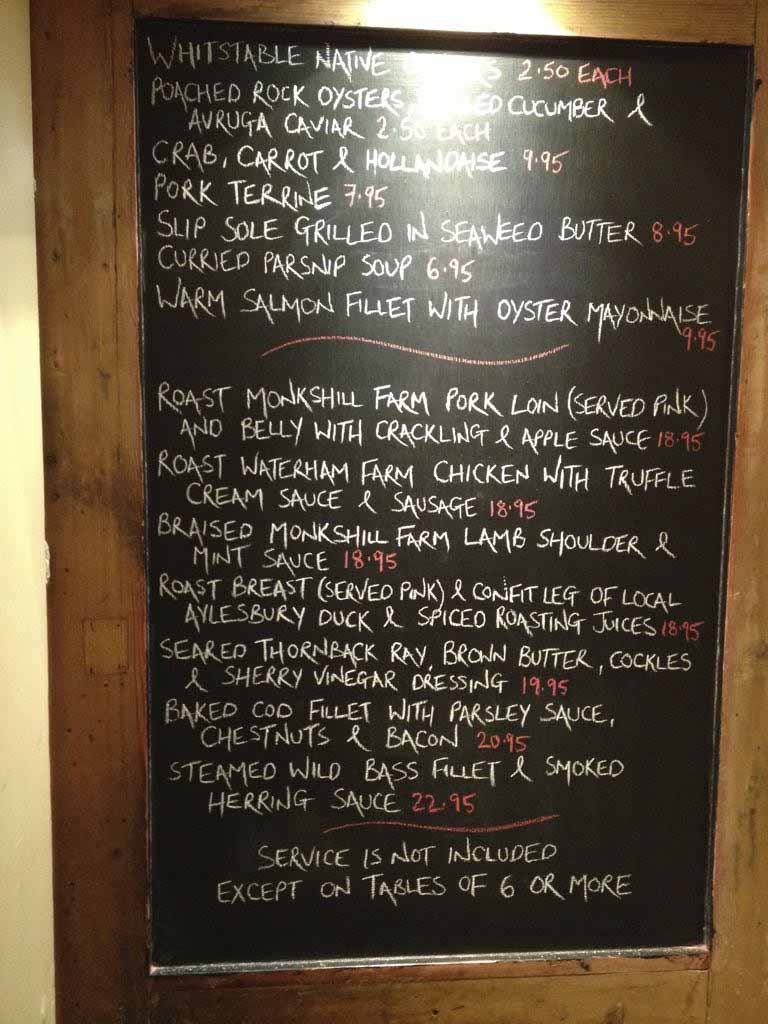 WHITSTABLE NATIVE 2.50 EACH
POACHED ROCK OYSTERS, CUCUMBER &
AVRUGA CAVIAR 2.50 EACH
CRAB, CARROT & HOLLANDAISE 9.95
PORK TERRINE 7.95
SLIP SOLE GRILLED IN SEAWEED BUTTER 8.95
CURRIED PARSNIP SOUP 6.95
WARM SALMON FILLET WITH OYSTER MAYONNAISE
9.95
ROAST MONKSHILL FARM PORK LOIN (SERVED PINK)
AND BELLY WITH CRACKLING & APPLE SAUCE 18.95
ROAST WATERHAM FARM CHICKEN WITH TRUFFLE
CREAM SAUCE & SAUSAGE 18.95
BRAISED MONKSHILL FARM LAMB SHOULDER &
MINT SAUCE 18.95
ROAST BREAST (SERVED PINK) & CONFIT LEG OF LOCAL
AYLESBURY DUCK & SPICED ROASTING JUICES 18.95
SEARED THORNBACK RAY, BROWN BUTTER, COCKLES
& SHERRY VINEGAR DRESSING 19.95
BAKED COD FILLET WITH PARSLEY SAUCE,
CHESTNUTS & BACON 20.95
STEAMED WILD BASS FILLET & SMOKED
HERRING SAUCE 22.95
SERVICE IS NOT INCLUDED
EXCEPT ON TABLES OF 6 OR MORE